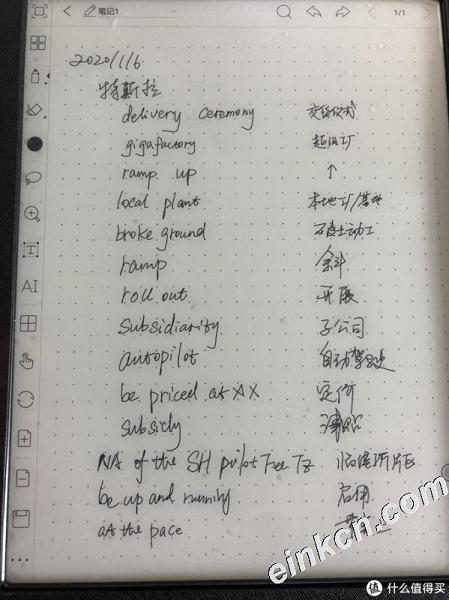 笔记1 1/1
2020/1/6
特斯拉
delivery ceremony 交付仪式
gigafactory 超级工厂
ramp up ↑
local plant 本地工厂/基地
broke ground 破土动工
ramp 斜
roll out 开展
subsidiarity 子公司
autopilot 自动驾驶
be priced at XX 定价
subsidy 津贴
NA of the SH pilot Free Tz 临港新片区
be up and running 启用
at the pace
AI
einkcn.com
值 什么值得买